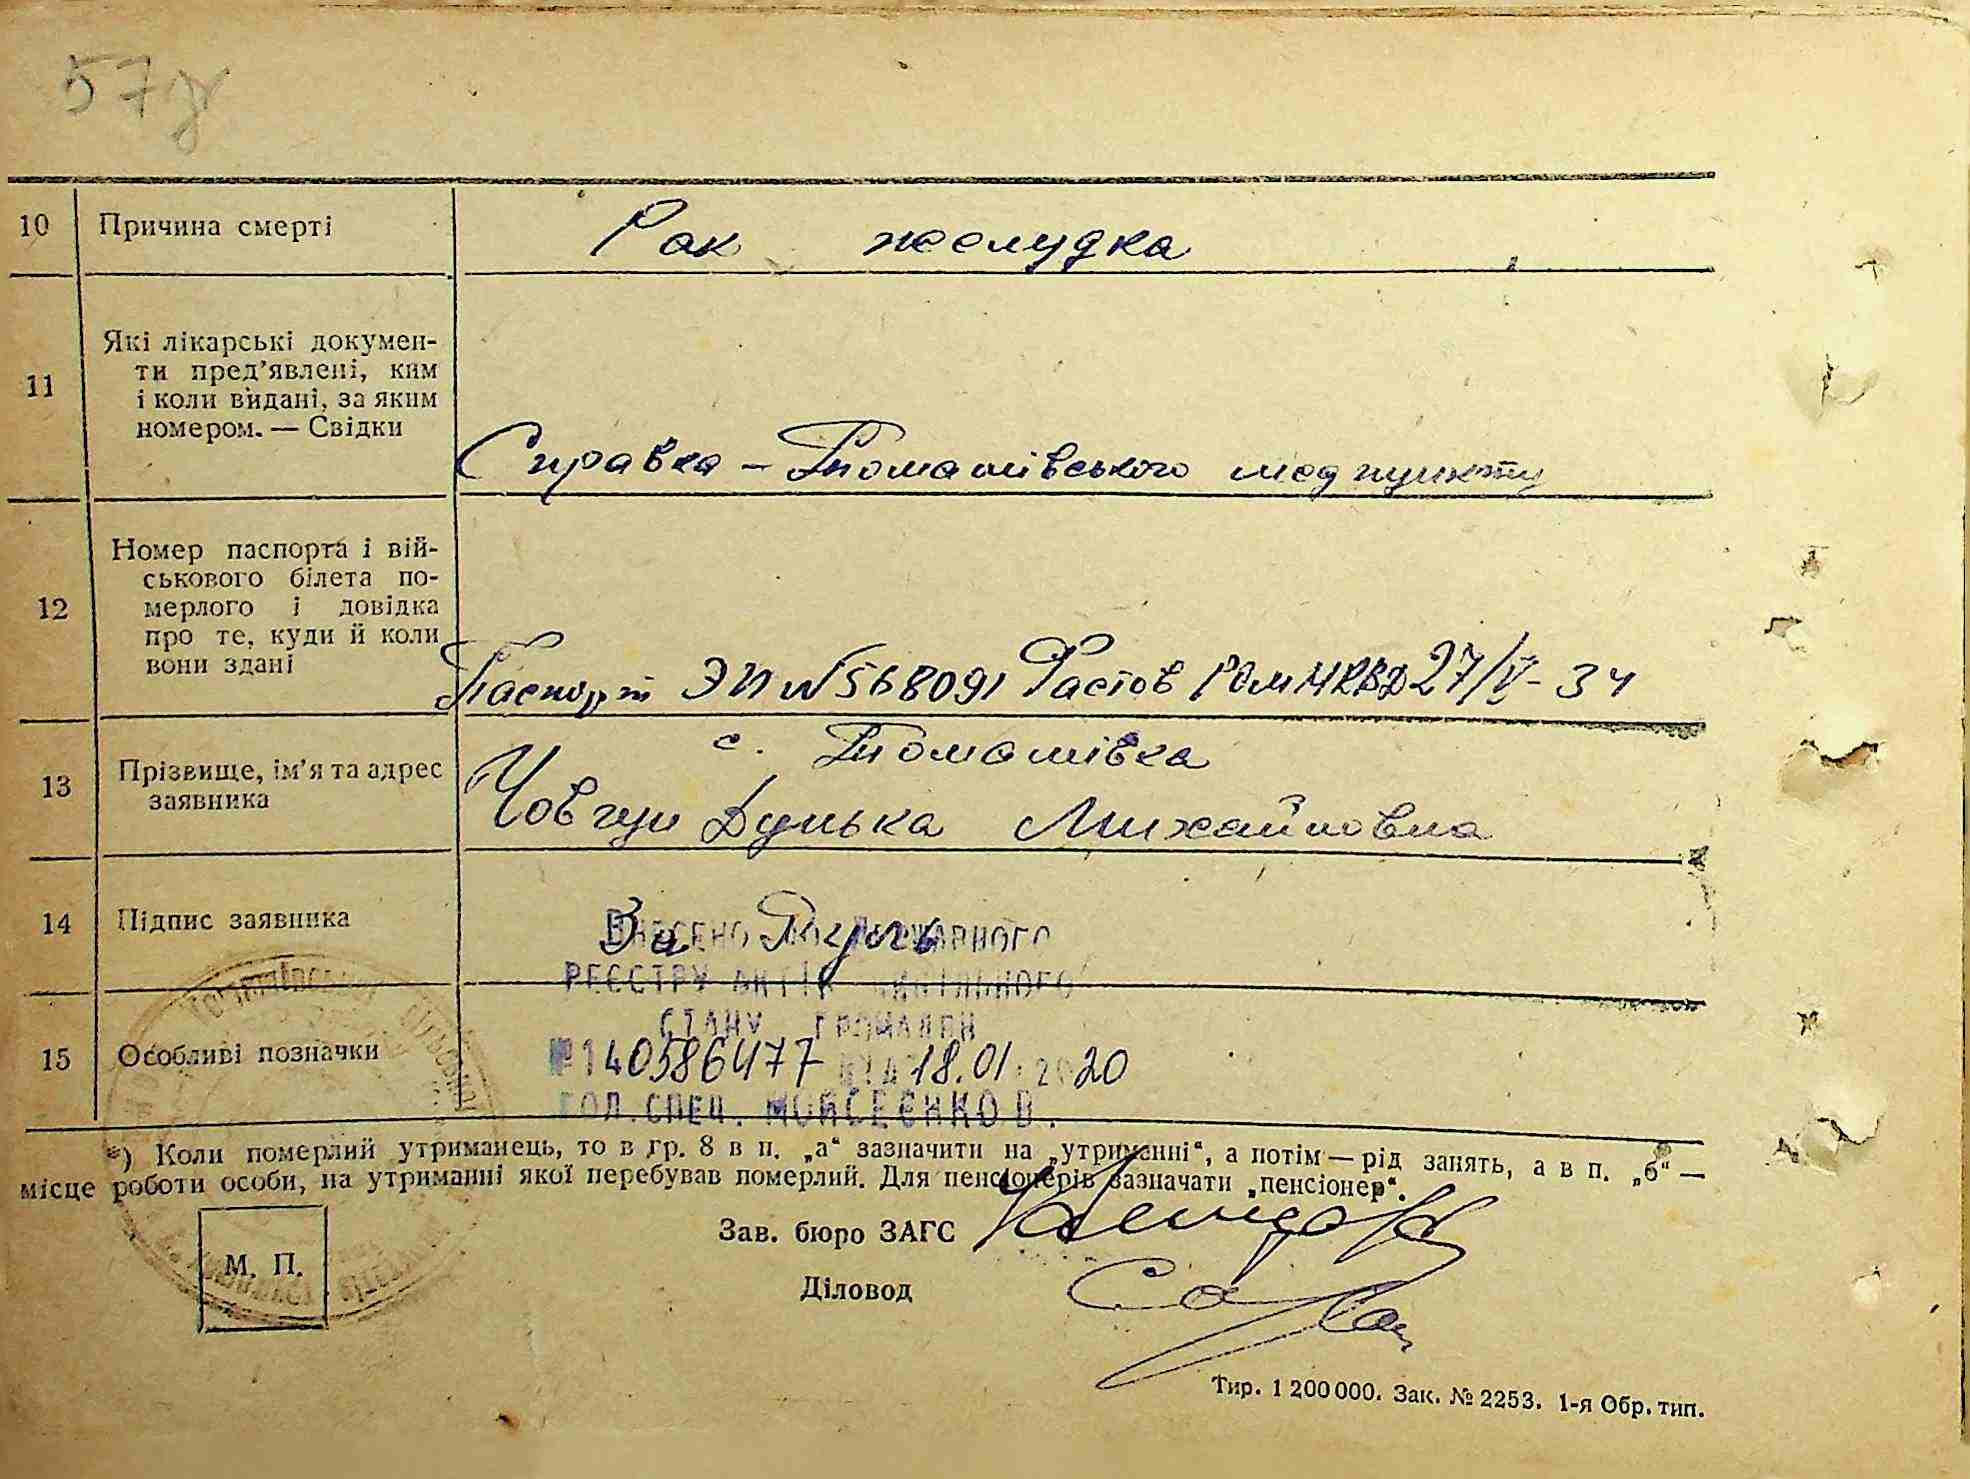 57
10 Причина смерті Рак желудка
11 Які лікарські докумен-
ти пред’явлені, ким
і коли видані, за яким
номером. — Свідки
Справка – Томашівського мед пункту
12 Номер паспорта і вій-
ськового білета по-
мерлого і довідка
про те, куди й коли
вони здані
Паспорт ЭП № 568091 Фастов РОМ НКВД 27/V - 34
с. Томашівка
13 Прізвище, ім’я та адрес
заявника
Човгун Дунька Михайловна
14 Підпис заявника За
ВНЕСЕНО ДО ДЕРЖАВНОГО
РЕЄСТРУ АКТІВ ЦИВІЛЬНОГО
СТАНУ ГРОМАДЯН
15 Особливі позначки
№ 140586477 ВІД 18.01.2020
ГОЛ. СПЕЦ. МОЙСЕЄНКО В.
*) Коли померлий утриманець, то в гр. 8 в п. „а“ зазначити на „утриманні“, а потім — рід занять, а в п. „б“ —
місце роботи особи, на утриманні якої перебував померлий. Для пенсіонерів зазначати „пенсіонер“.
Зав. бюро ЗАГС
М. П.
Діловод
Тир. 1 200 000. Зак. № 2253. 1-я Обр. тип.